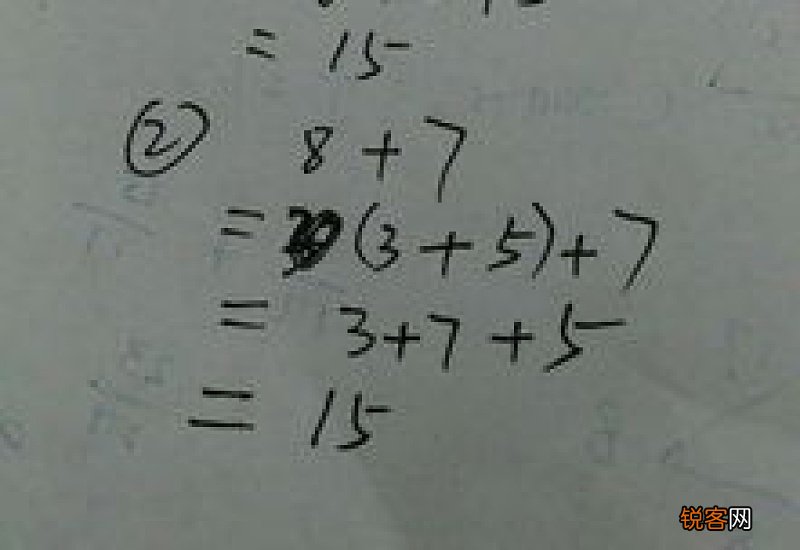 = 15
② 8 + 7
= (3 + 5) + 7
= 3 + 7 + 5
= 15
锐客网